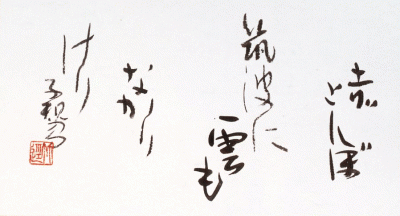 赤とんぼ
筑波に
雲も
なかり
けり
子規